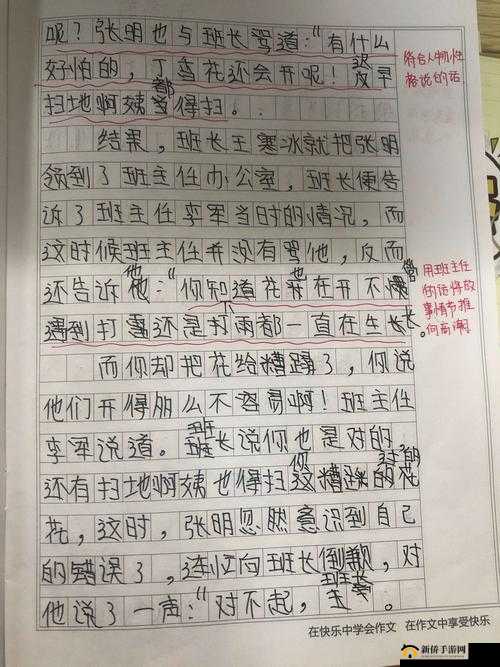 呢？张明也与班长骂道："有什么
好怕的，丁香花还会开呢！迟早
扫地阿姨都得扫。
符合人物性
格说的话
结果，班长王寒冰就把张明
领到了班主任办公室，班长便告
诉了班主任李军当时的情况，而
这时候班主任并没有骂他，反而
还告诉他："你知道花在开不
遇到打雷还是打雨都一直在生长。
用班主任
的话将故
事情节推
向高潮
而你却把花给糟蹋了，你说
他们开得那么不容易啊！班主任
李军说道。班长说你也是对的，
还有扫地阿姨也得扫你糟蹋过的花
花，这时，张明忽然意识到自己
的错误了，连忙向班长倒歉，对
他说了一声："对不起，班长。
在快乐中学会作文 在作文中享受快乐
新侨手游网